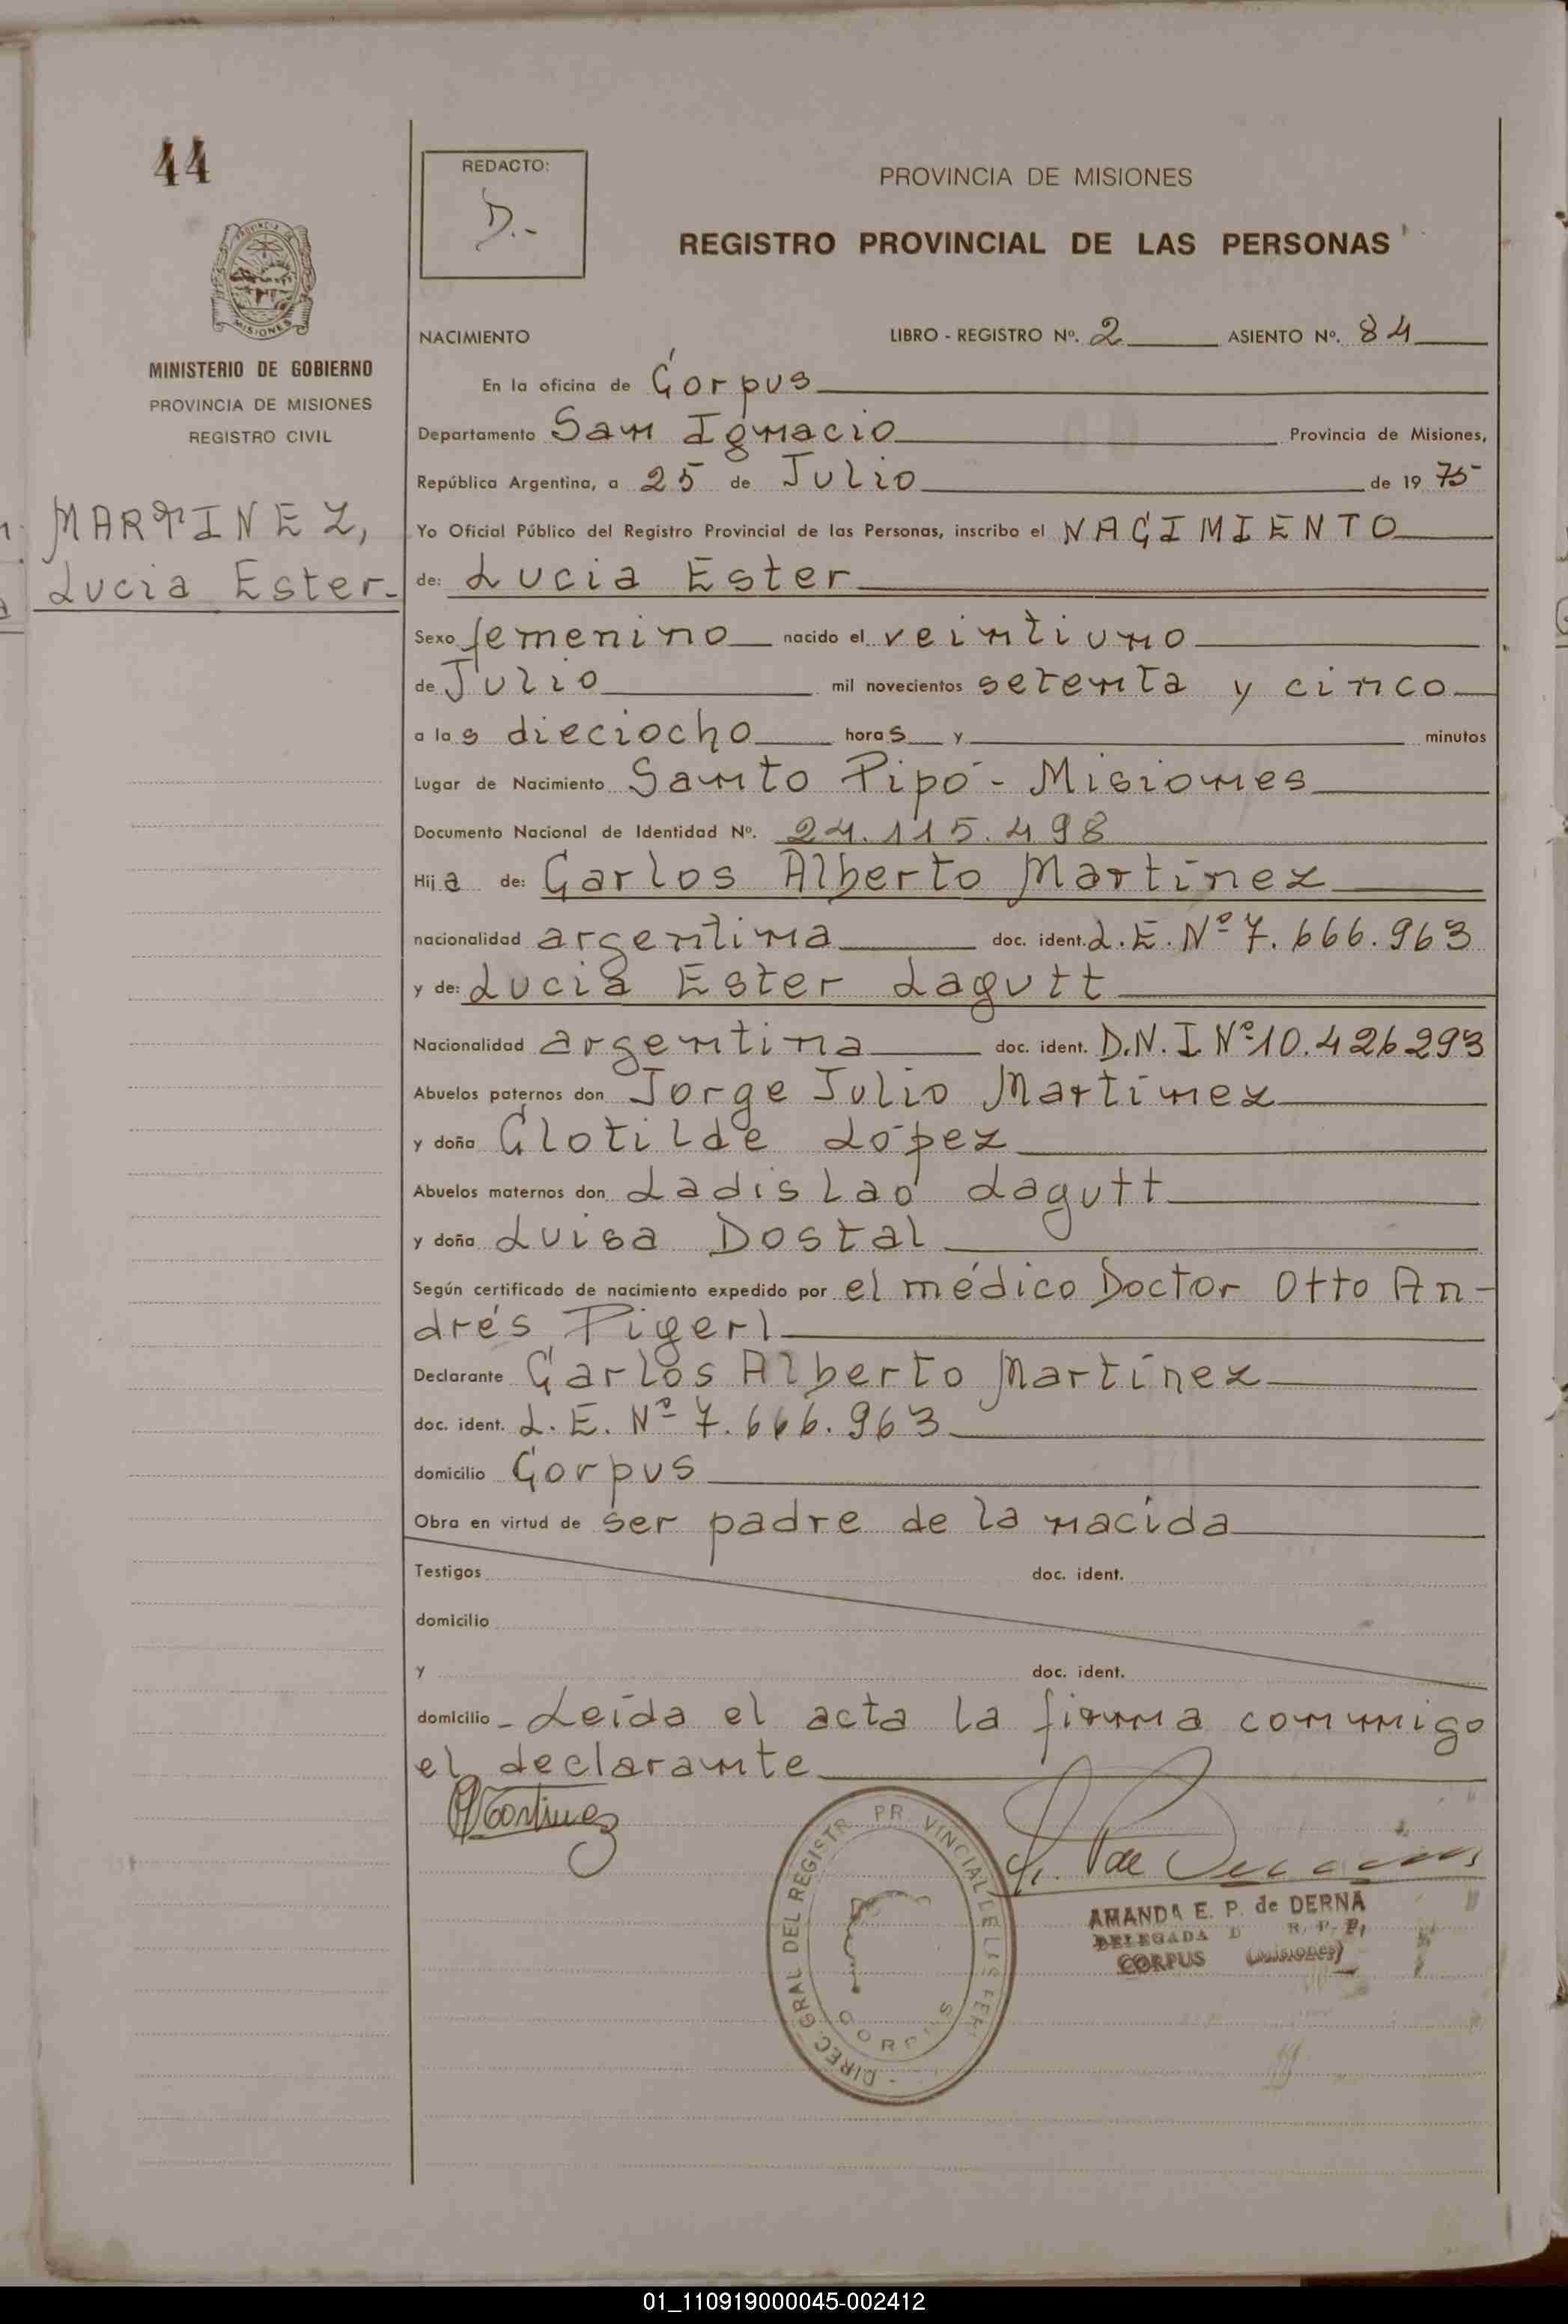 44
REDACTO:
D.-
PROVINCIA DE MISIONES
REGISTRO PROVINCIAL DE LAS PERSONAS
MISIONES
MINISTERIO DE GOBIERNO
PROVINCIA DE MISIONES
REGISTRO CIVIL
MARTINEZ,
Lucia Ester-
NACIMIENTO LIBRO - REGISTRO Nº. 2 ASIENTO Nº. 84
En la oficina de Corpus
Departamento San Ignacio Provincia de Misiones,
República Argentina, a 25 de Julio de 19 75
Yo Oficial Público del Registro Provincial de las Personas, inscribo el NACIMIENTO
de: Lucia Ester
Sexo femenino nacido el veintiuno
de Julio mil novecientos setenta y cinco
a las dieciocho horas y minutos
Lugar de Nacimiento Santo Pipó - Misiones
Documento Nacional de Identidad Nº. 24.115.498
Hija de: Carlos Alberto Martínez
nacionalidad argentina doc. ident. L.E. Nº 7.666.963
y de: Lucia Ester Lagutt
Nacionalidad argentina doc. ident. D.N.I Nº 10.426293
Abuelos paternos don Jorge Julio Martínez
y doña Clotilde López
Abuelos maternos don Ladislao Lagutt
y doña Luisa Dostal
Según certificado de nacimiento expedido por el médico Doctor Otto An-
drés Pigerl
Declarante Carlos Alberto Martínez
doc. ident. L. E. Nº 7.666.963
domicilio Corpus
Obra en virtud de ser padre de la nacida
Testigos doc. ident.
domicilio
y doc. ident.
domicilio - Leída el acta la firma conmigo
el declarante
Martinez
DIREC. GRAL DEL REGISTR PR VINCIAL DE LAS PER.
CORPUS
AMANDA E. P. de DERNA
DELEGADA D R. P. P.
CORPUS (Misiones)
01_110919000045-002412